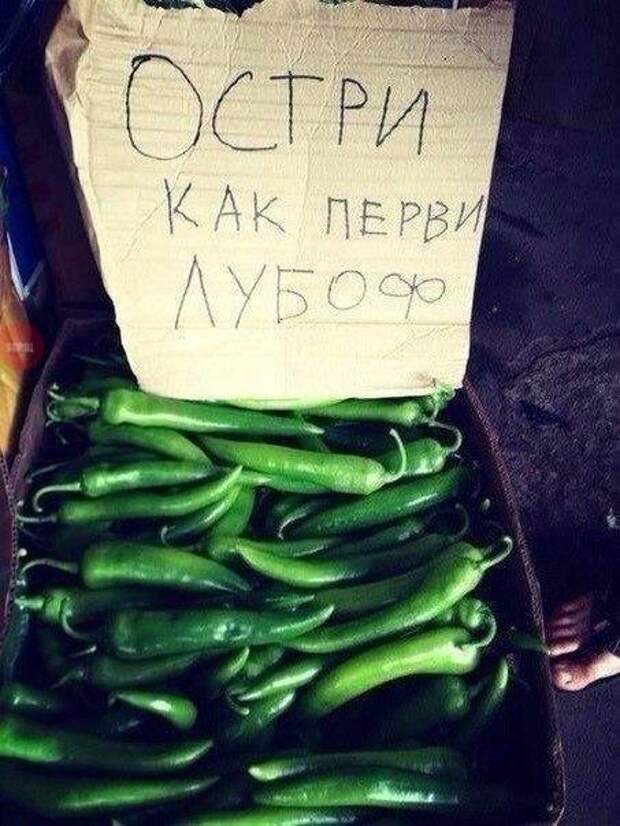 ОСТРИ
КАК ПЕРВИ
ЛУБОФ